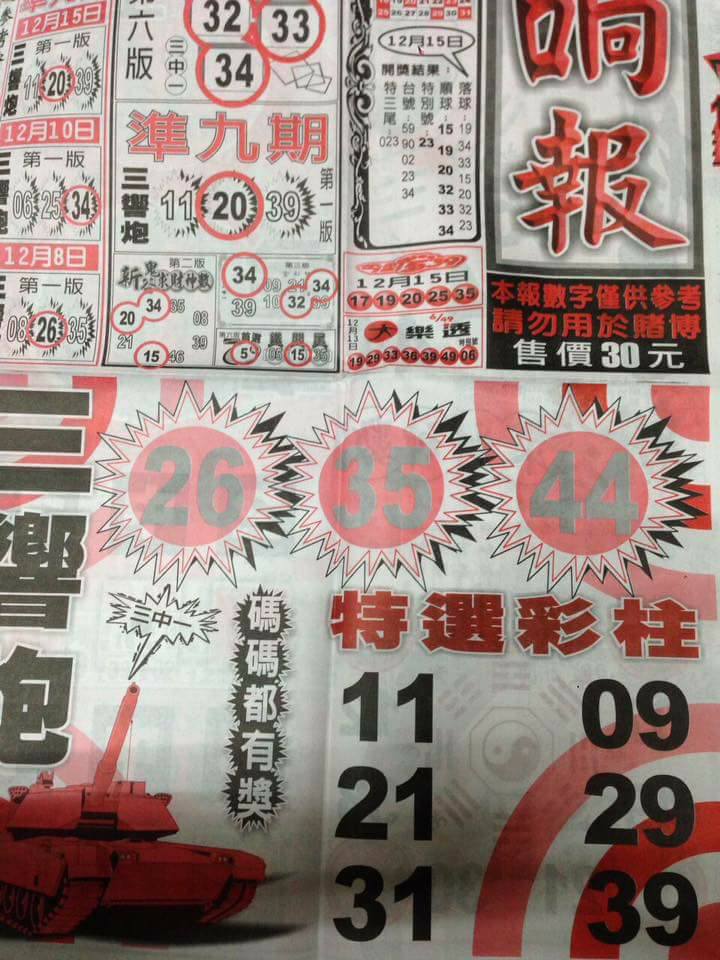 12月15日
第一版
11 20 39
12月10日
第一版
06 25 34
12月8日
第一版
08 26 35
第六版
三中一
32 33
34
準九期
三響炮
11 20 39
第一版
第二版
34 35
20
08
21
39
15 46
34
39
34
10 32
5
06 15 35
25 26 27 28 29 30 31
12月15日
開獎結果:
特三尾:
023
台號:
59
90
02
23
34
特別號:
23
順球:
15
19
20
32
33
34
落球:
19
34
20
15
32
23
12月15日
17 19 20 25 35
12月13日
大樂透
6/49
特別號
19 29 33 36 39 49 06
報
本報數字僅供參考
請勿用於賭博
售價30元
三響炮
26 35 44
三中一
碼碼都有獎
特選彩柱
11 09
21 29
31 39